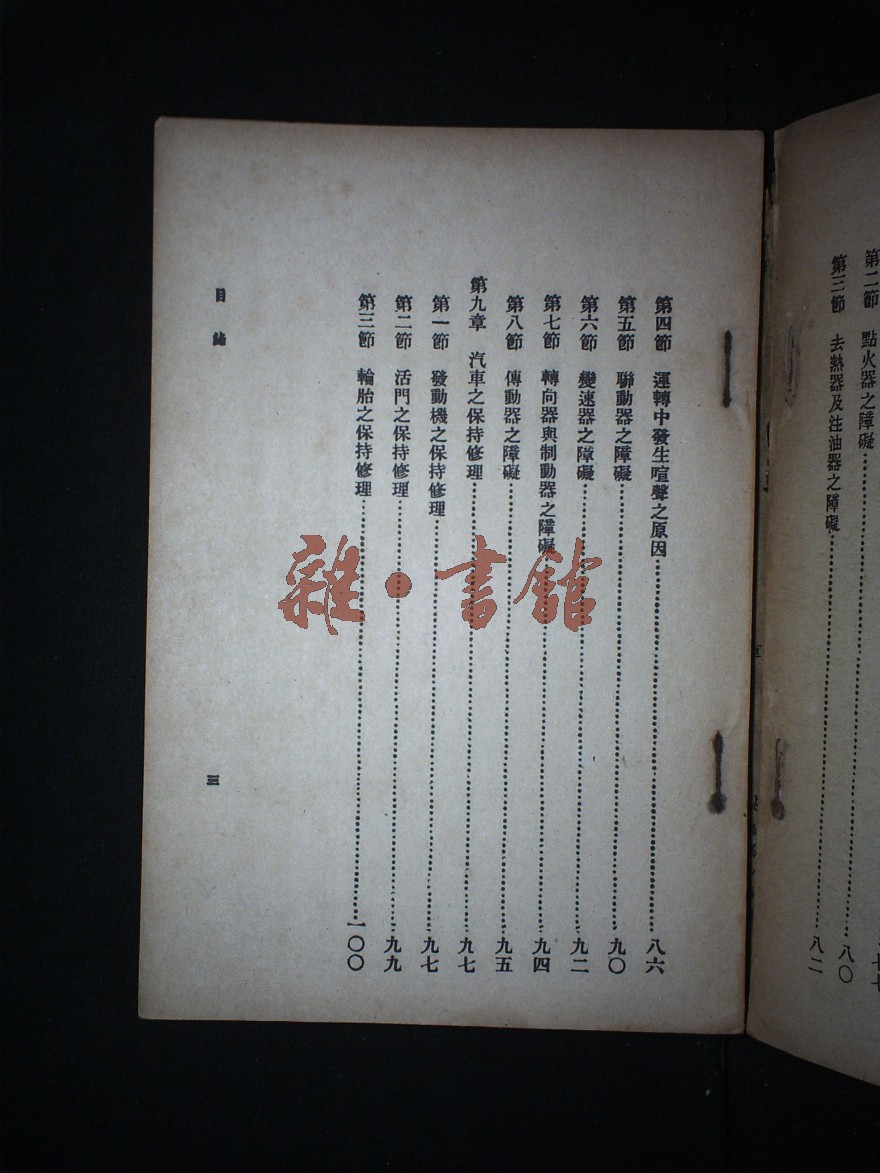 第二節　點火器之障礙……八〇
第三節　去熱器及注油器之障礙……八二
第四節　運轉中發生喧聲之原因……八六
第五節　聯動器之障礙……九〇
第六節　變速器之障礙……九二
第七節　轉向器與制動器之障礙……九四
第八節　傳動器之障礙……九五
第九章　汽車之保持修理……九七
第一節　發動機之保持修理……九七
第二節　活門之保持修理……九九
第三節　輪胎之保持修理……一〇〇
目
三
雜・書館